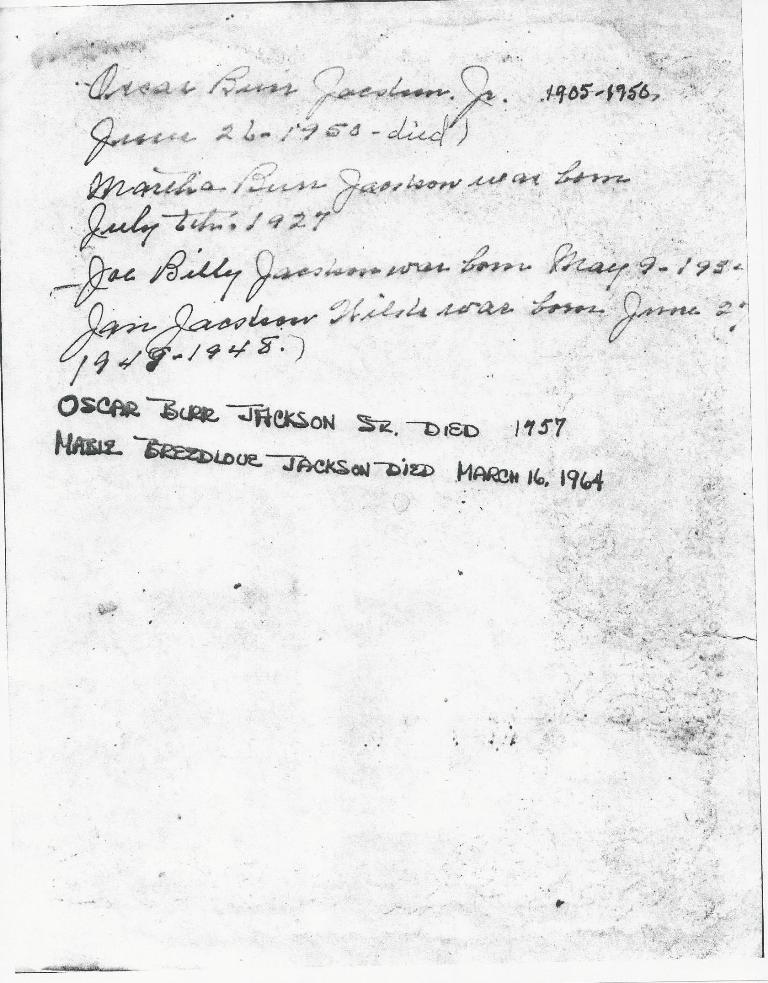 Oscar Burr Jackson. Jr. 1905-1950.
June 26-1950-died)
Martha Burr Jackson was born
July 1927
Joe Billy Jackson was born May 9-193
Jan Jackson was born June 2
1948-1948.)
OSCAR BURR JACKSON SR. DIED 1957
MABLE BREEDLOVE JACKSON DIED MARCH 16, 1964